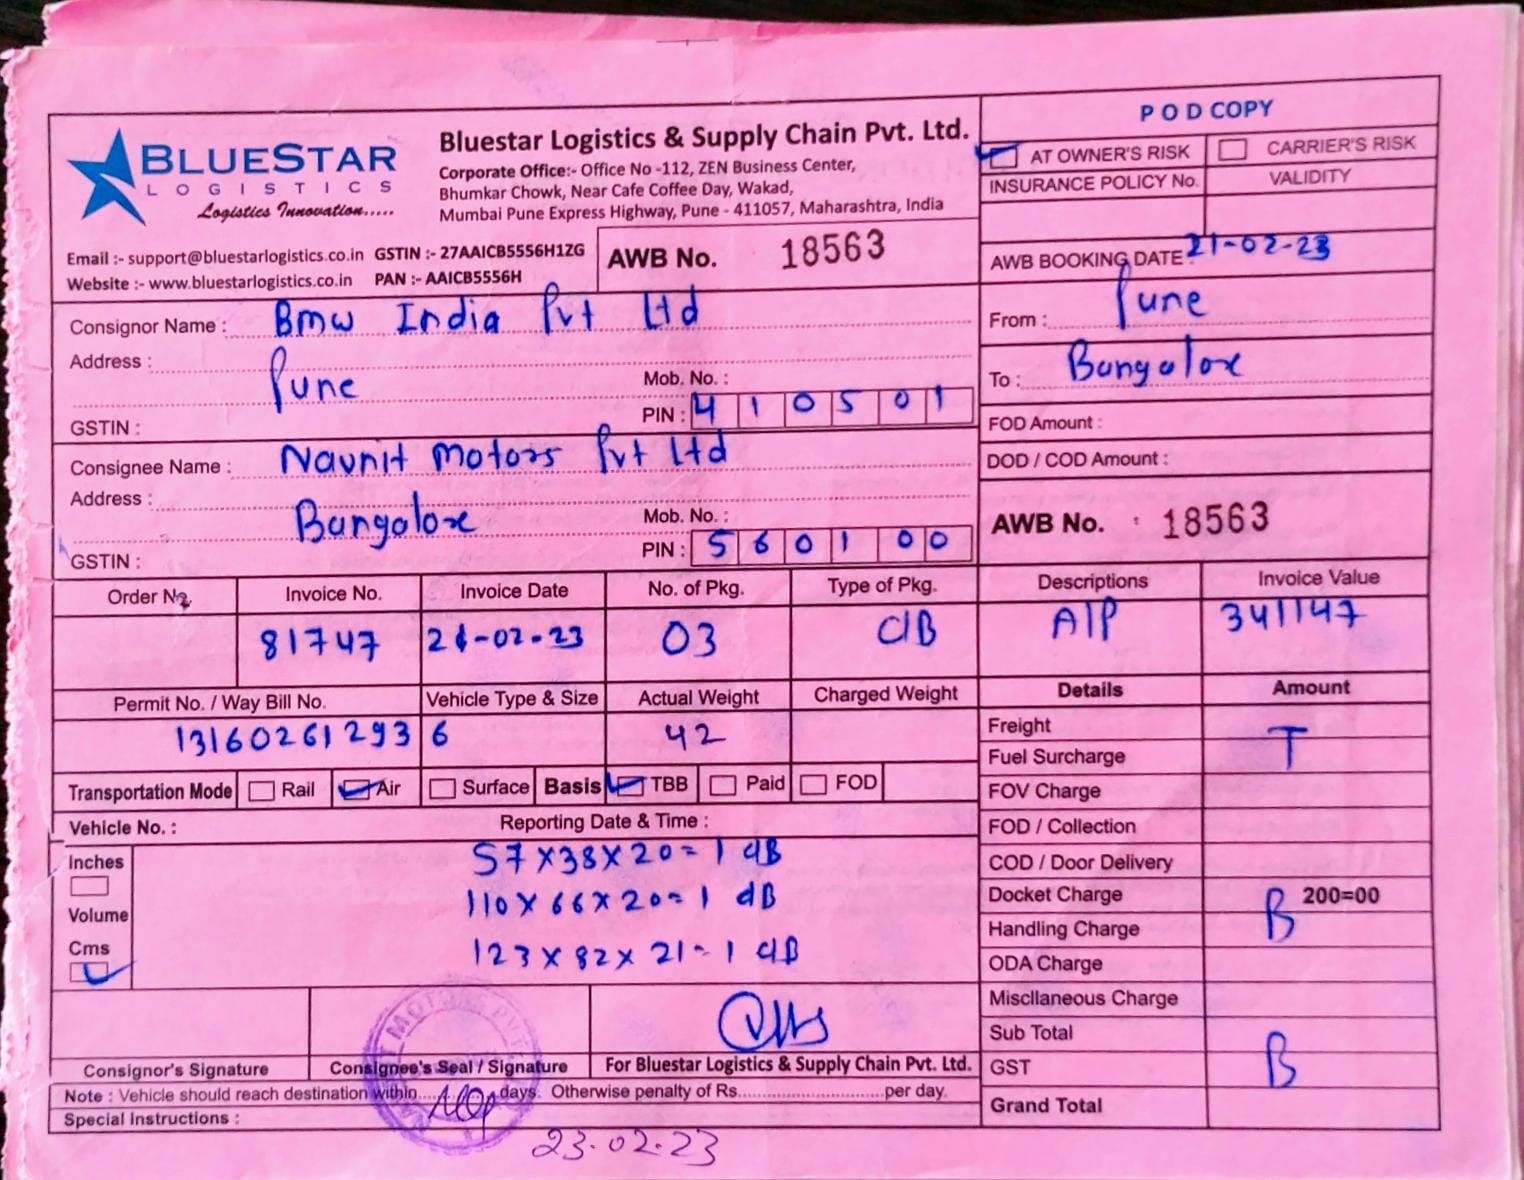 POD COPY
BLUESTAR
LOGISTICS
Logistics Innovation.....
Bluestar Logistics & Supply Chain Pvt. Ltd.
Corporate Office:- Office No -112, ZEN Business Center,
Bhumkar Chowk, Near Cafe Coffee Day, Wakad,
Mumbai Pune Express Highway, Pune - 411057, Maharashtra, India
AT OWNER'S RISK CARRIER'S RISK
INSURANCE POLICY No. VALIDITY
Email :- support@bluestarlogistics.co.in GSTIN :- 27AAICB5556H1ZG
Website :- www.bluestarlogistics.co.in PAN :- AAICB5556H
AWB No. 18563
AWB BOOKING DATE : 21-02-23
Consignor Name : Bmw India Pvt Ltd
From : Pune
Address :
Pune
Mob. No. :
To : Bangalore
GSTIN : PIN : 410501
FOD Amount :
Consignee Name : Navnit Motors Pvt Ltd
DOD / COD Amount :
Address :
Bangalore
Mob. No. :
AWB No. 18563
GSTIN : PIN : 560100
Order No. Invoice No. Invoice Date No. of Pkg. Type of Pkg. Descriptions Invoice Value
81747 21-02-23 03 C/B A/P 341147
Permit No. / Way Bill No. Vehicle Type & Size Actual Weight Charged Weight Details Amount
131602612936 42
Freight T
Fuel Surcharge
Transportation Mode Rail Air Surface Basis TBB Paid FOD
FOV Charge
Vehicle No. : Reporting Date & Time :
FOD / Collection
Inches 57x38x20=1 C/B
COD / Door Delivery
Volume 110x66x20=1 C/B
Docket Charge 200=00
Handling Charge B
Cms 123x82x21-1 C/B
ODA Charge
Miscllaneous Charge
Sub Total
GST B
Grand Total
Consignor's Signature Consignee's Seal / Signature For Bluestar Logistics & Supply Chain Pvt. Ltd.
Note : Vehicle should reach destination within..........days. Otherwise penalty of Rs..............................per day.
Special Instructions :
23.02.23